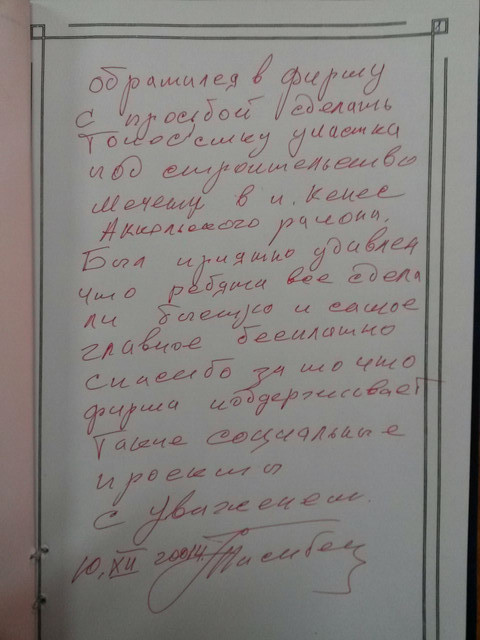 обратился в фирму
с просьбой сделать
топосъемку участка
под строительство
мечети в п. Кенес
Аккольского района.
Был приятно удивлен
что ребята все сдела
ли быстро и самое
главное бесплатно
спасибо за то что
фирма поддерживает
такие социальные
проекты
с уважением.
10, XII